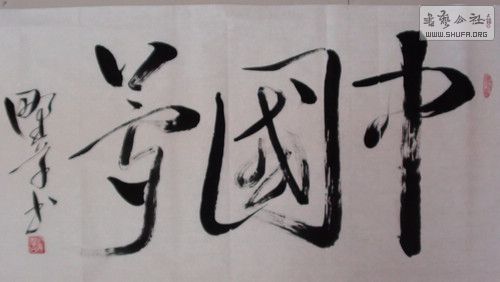 中國夢
書藝公社
WWW.SHUFA.ORG